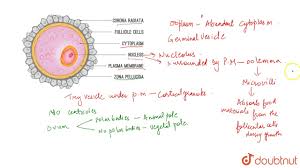 CORONA RADIATA
FOLLICLE CELLS
CYTOPLASM
NUCLEUS
PLASMA MEMBRANE
ZONA PELLUCIDA
Ooplasm - Abundant Cytoplasm
Germinal Vesicle
Nucleolus
surrounded by P.M - oolemma
Microvilli
Absorb food
materials from the
follicular cells
during growth
Tiny vesicle under p.m - Cortical granules
No centrioles
Ovum
Polar bodies - Animal pole
No polar bodies - Vegetal pole
doubtnut